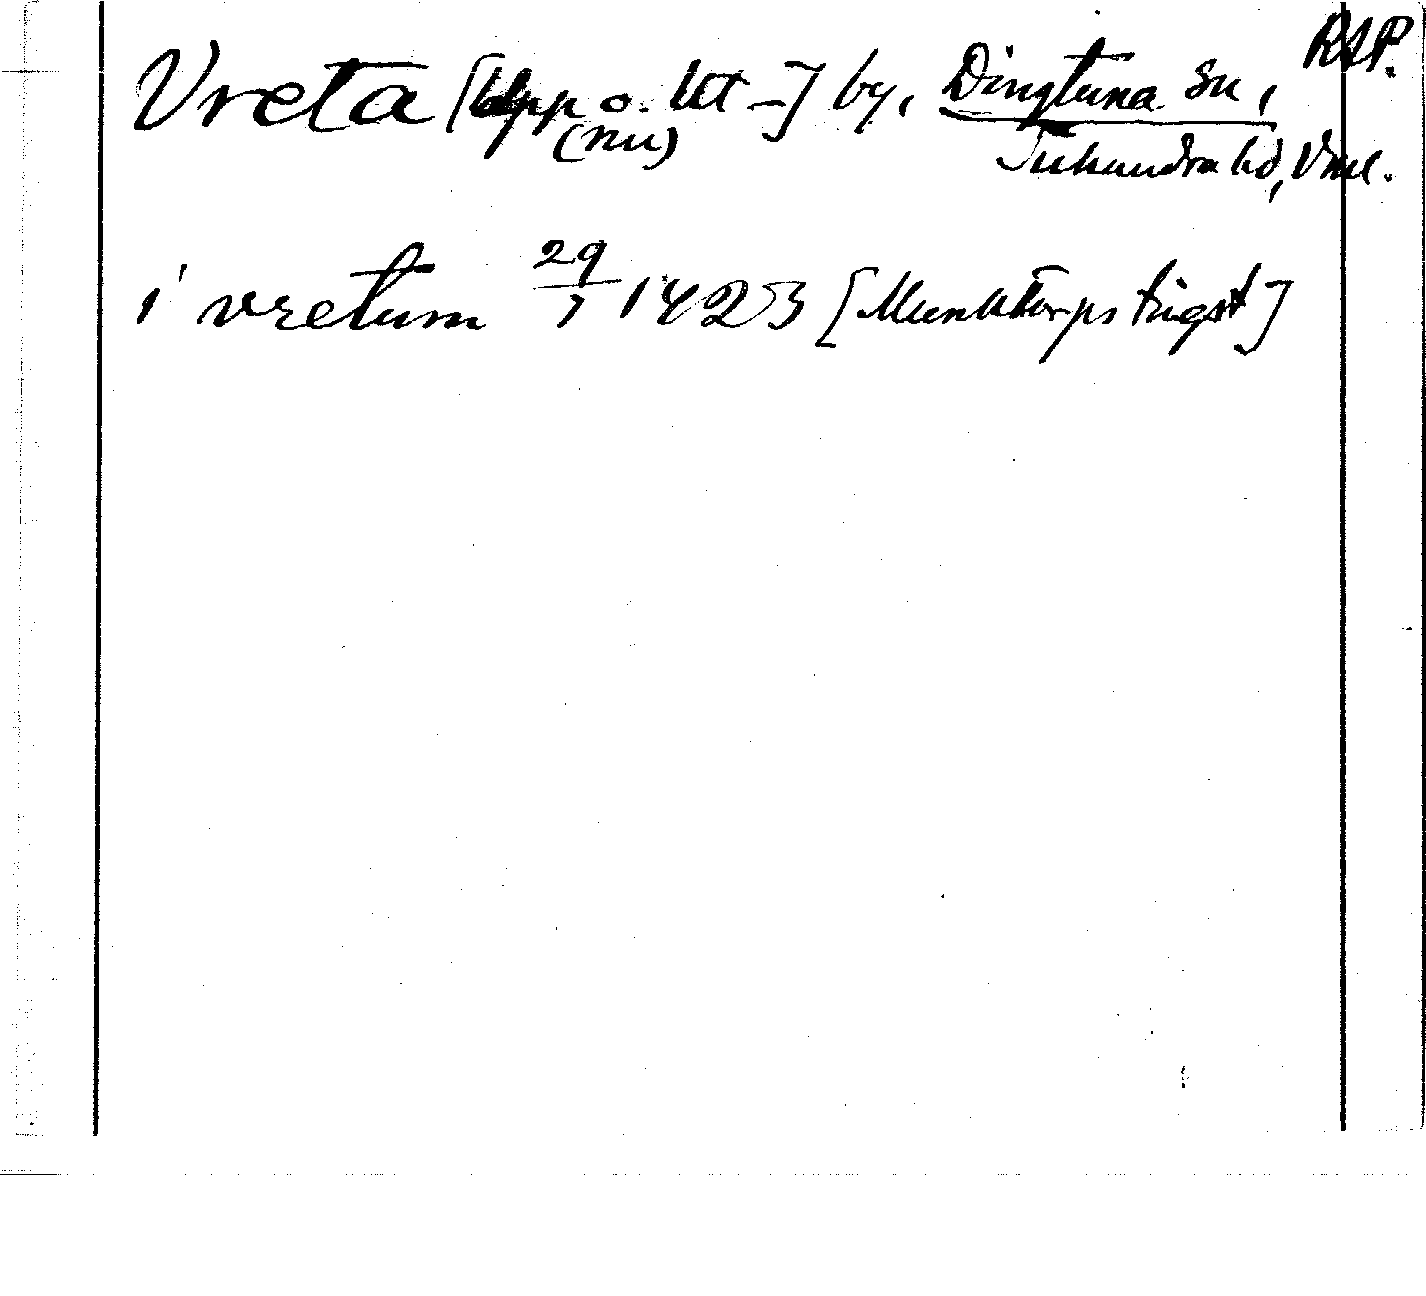 Vreta [Upp o. Ut -] by, Dingtuna sn, RAP.
(nu) Tuhundra hd, Vml.
i vretum 29/7 1423 [Munktorps tingst]